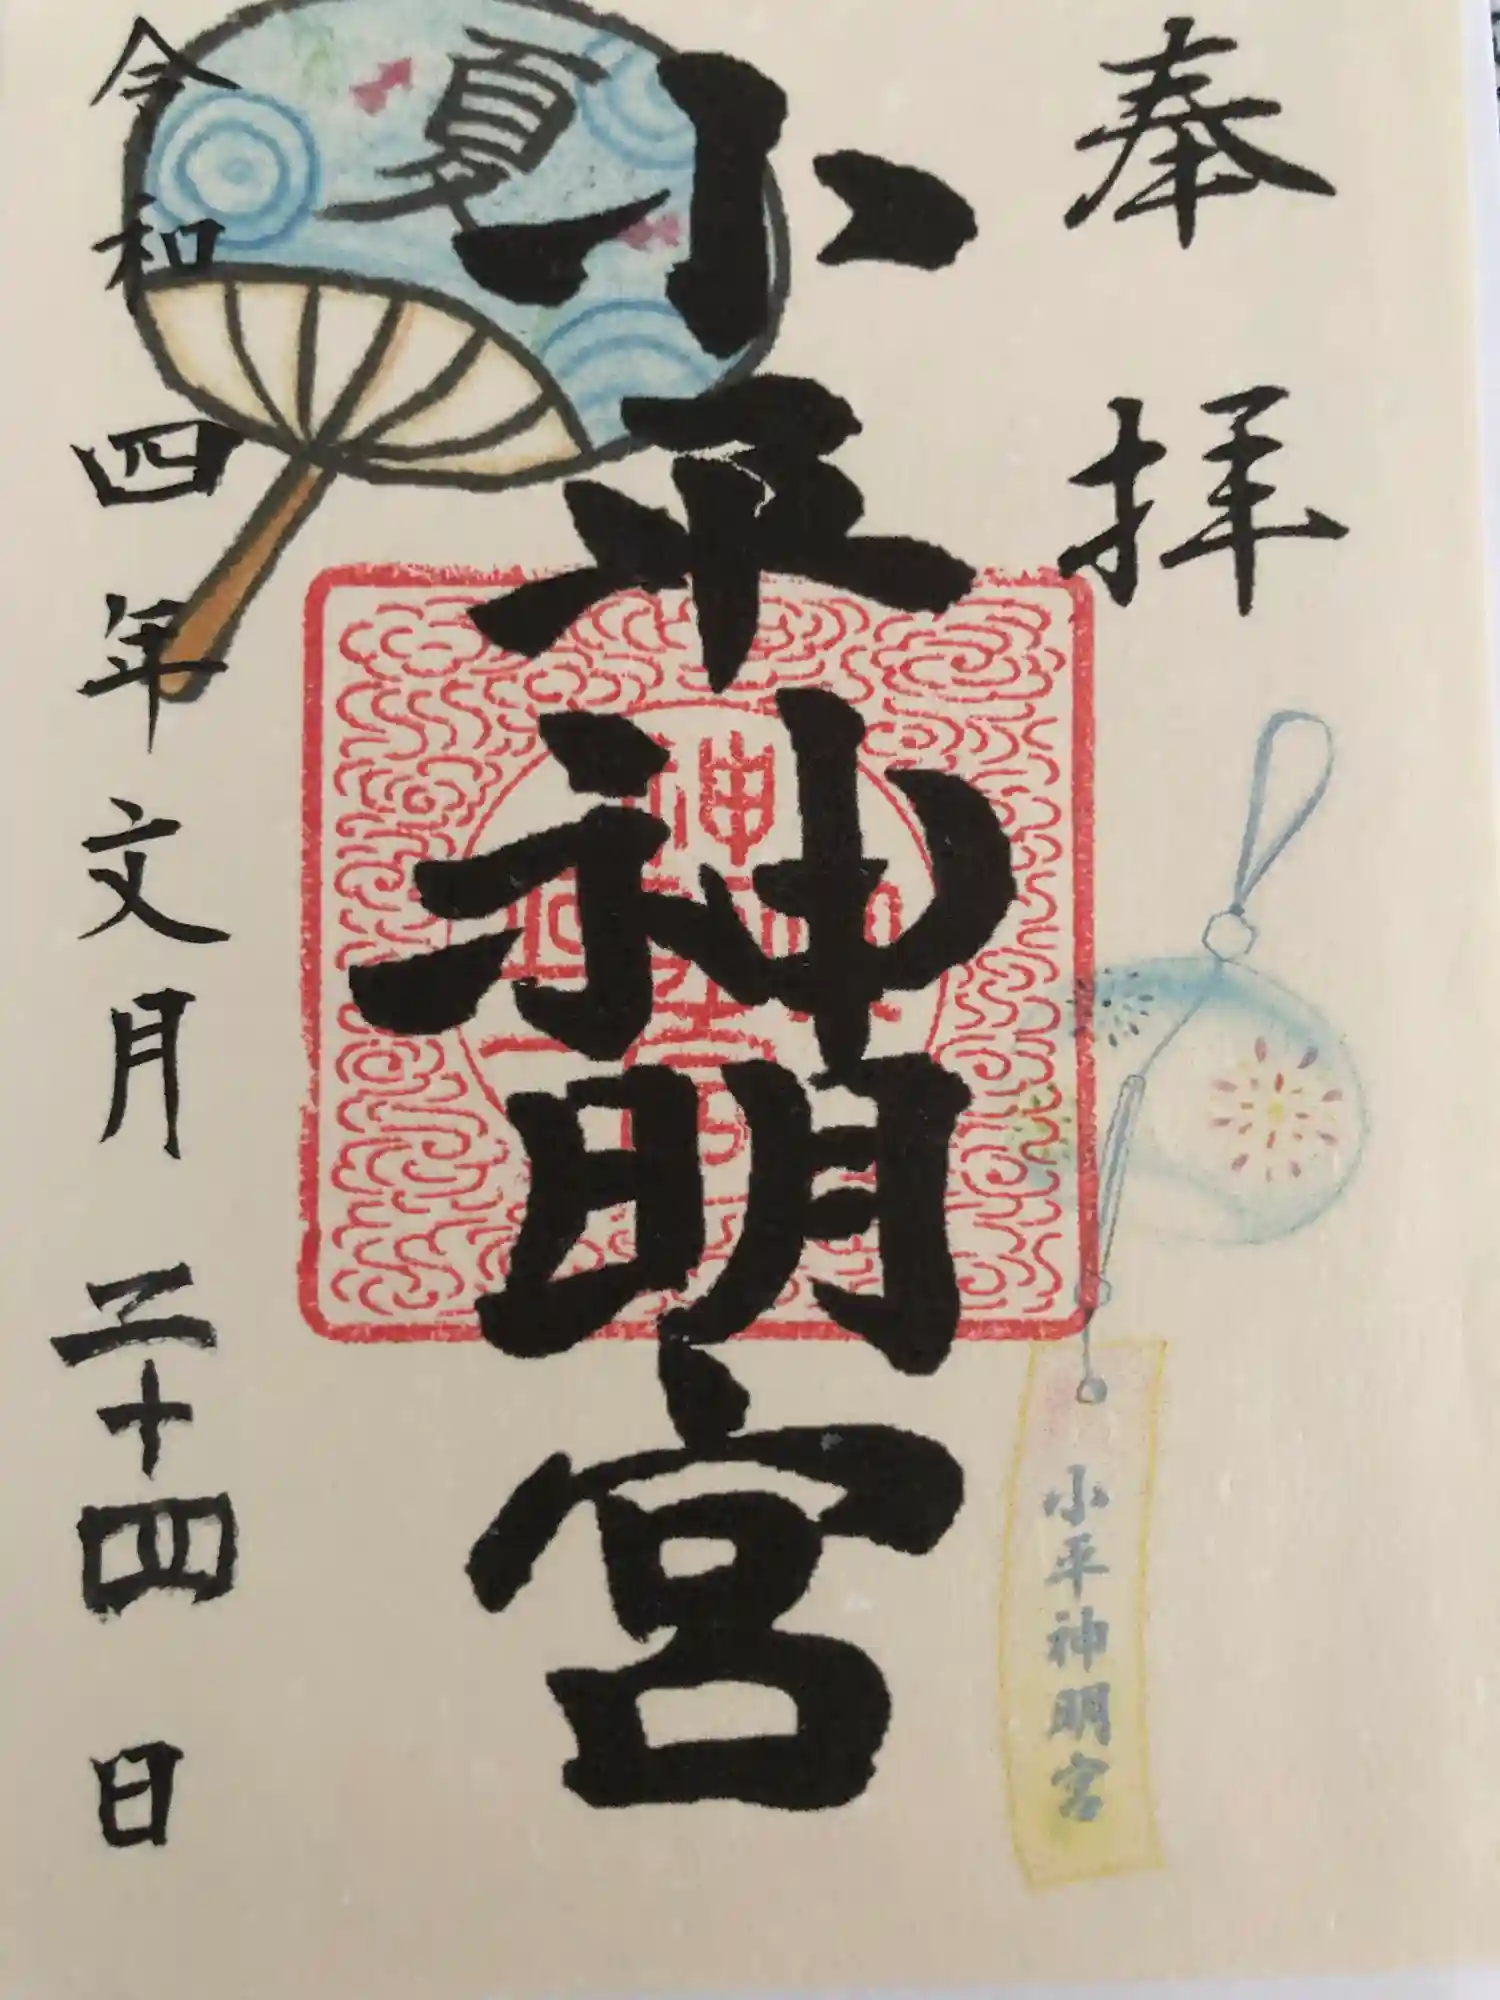 奉拝
小平神明宮
夏
令和四年文月二十四日
小平神明宮